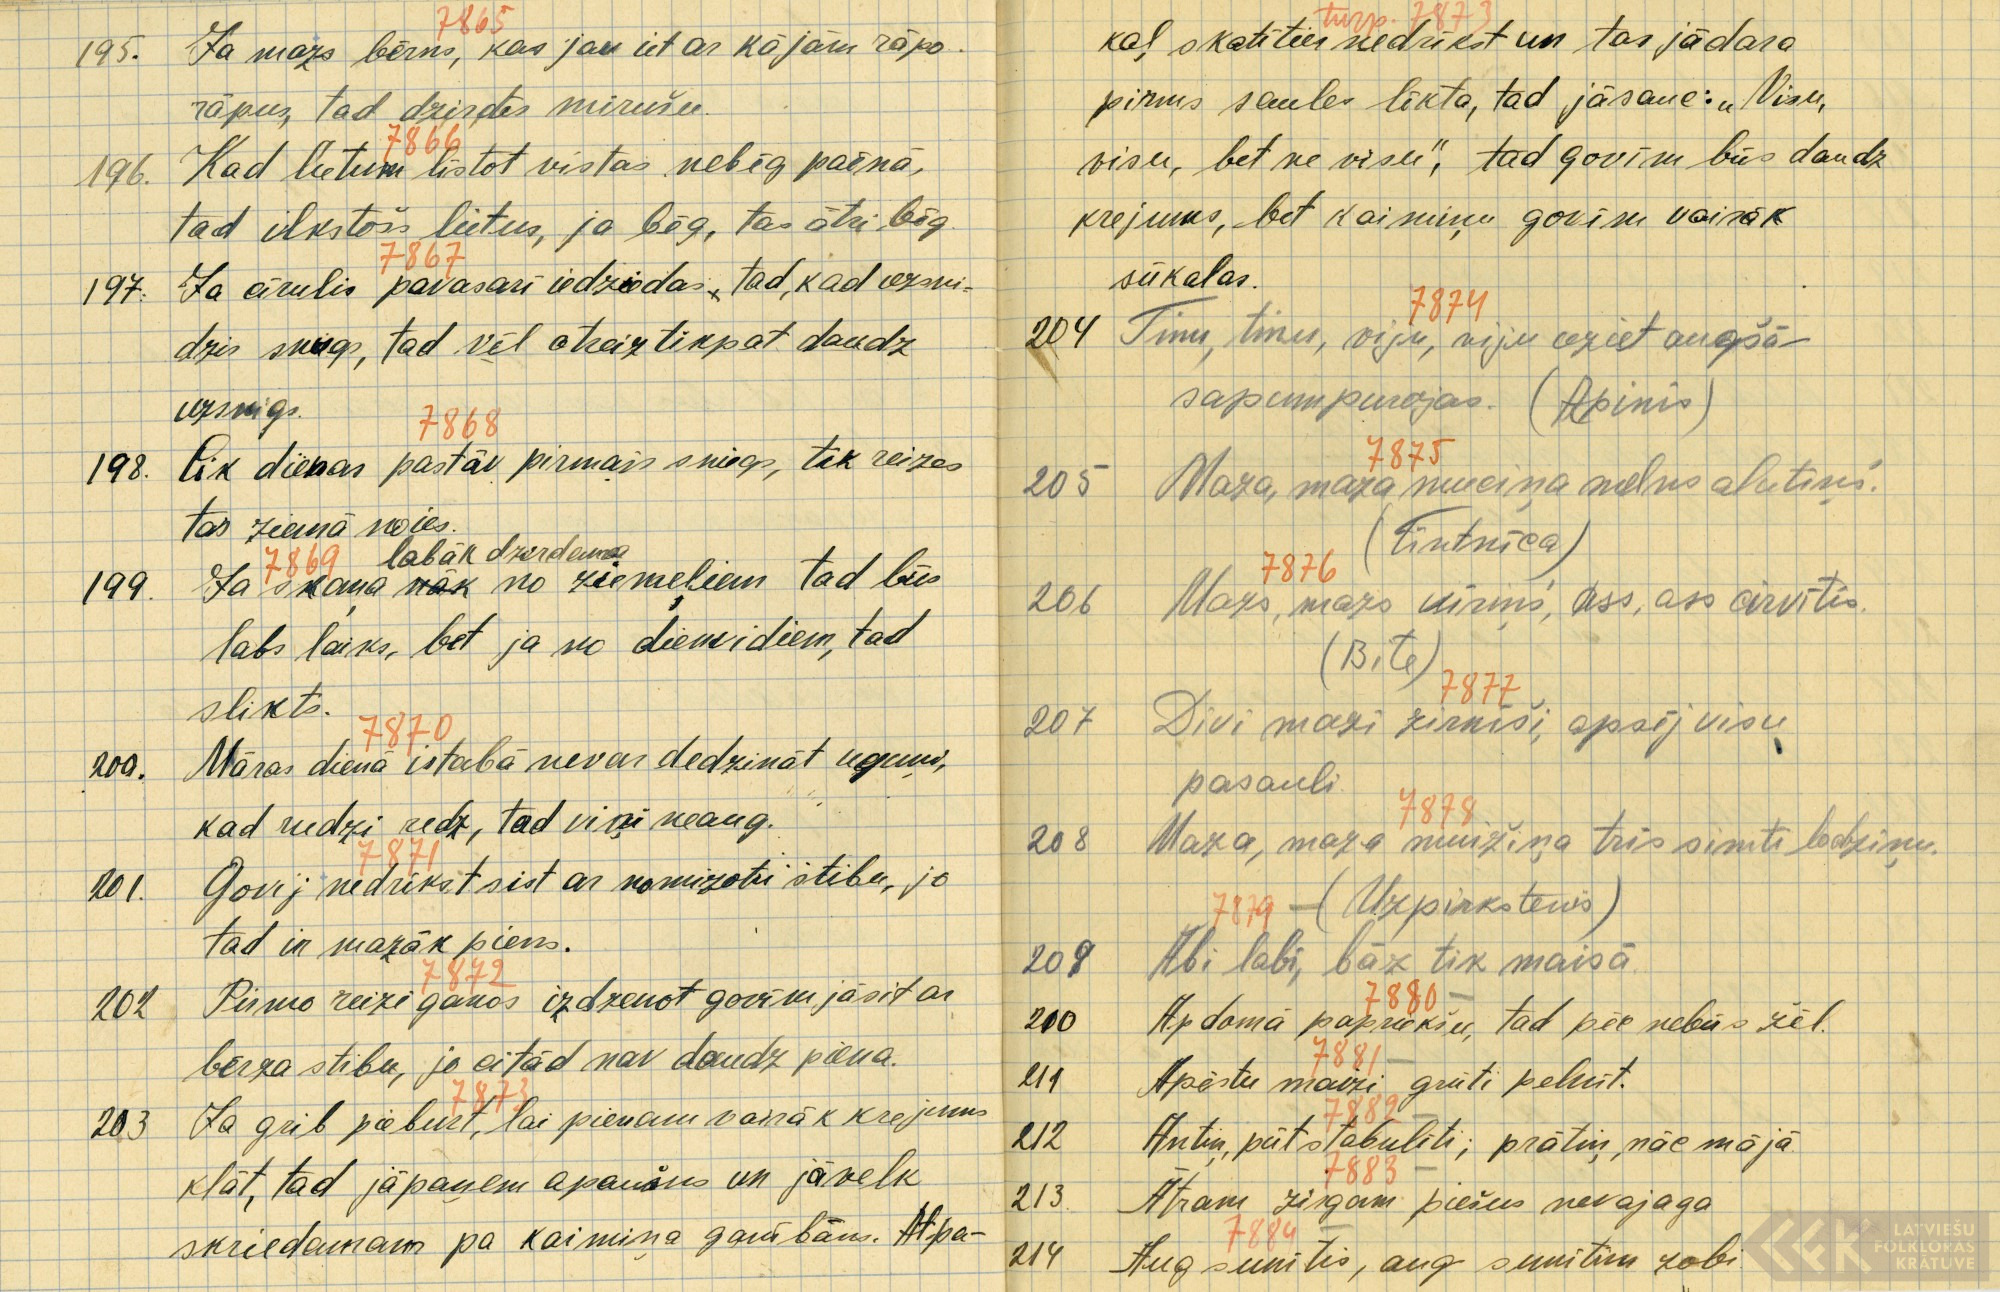 7865
195. Ja mazs bērns, kas jau iet ar kājām rāpo
rāpus, tad dzirdēs mirušu.
7866
196. Kad lietum līstot vistas nebēg paēnā,
tad ilkstošs lietus, ja bēg, tas ātri bēg.
7867
197. Ja cīrulis pavasarī iedziedas, tad, kad uzsni-
dzis sniegs, tad vēl otraiz tikpat daudz
uzsnigs.
7868
198. Cik dienas pastāv pirmais sniegs, tik reizes
tas ziemā noies.
7869 labāk dzirdama
199. Ja skaņa nāk no ziemeļiem tad būs
labs laiks, bet ja no dienvidiem, tad
slikts.
7870
200. Māras dienā istabā nevar dedzināt uguni,
kad rudzi redz, tad viņi neaug.
7871
201. Govij nedrīkst sist ar nomizotu stibu, jo
tad ir mazāk piens.
7872
202 Pirmo reizi ganos izdzenot govīm jāsit ar
bērza stibu, jo citād nav daudz piena.
7873
203 Ja grib pieburt, lai pienam vairāk krejums
klāt, tad jāpaņem apaušus un jāvelk
skriedamam pa kaimiņa ganībām. Atpa-
turp. 7873
kaļ skatīties nedrīkst un tas jādara
pirms saules lēkta, tad jāsauc: „Visu,
visu, bet ne visu", tad govīm būs daudz
krejums, bet kaimiņu govīm vairāk
sūkalas.
7874
204 Tinu, tinu, viju, viju uziet augšā
sapumpurojas. (Apinis)
7875
205 Maza, maza muciņa melns alutiņš.
(Tintnīca)
7876
206 Mazs, mazs vīriņš, ass, ass cirvītis.
(Bite)
7877
207 Divi mazi zirnīši, apsēj visu
pasauli.
7878
208 Maza, maza muižiņa trīs simti lodziņu.
7879 — (Uzpirkstenis)
209 Abi labi, bāz tik maisā.
7880 —
210 Apdomā papriekšu, tad pēc nebūs žēl.
7881 —
211 Apēstu maizi grūti pelnīt.
7882 —
212 Antiņ, pūt stabulīti; prātiņ, nāc mājā
7883 —
213. Ātram zirgam piešus nevajaga
7884 —
214 Aug sunītis, aug sunītim zobi
LATVIEŠU
FOLKLORAS
KRĀTUVE